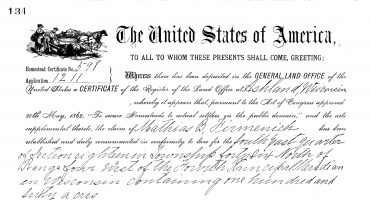 134
The United States of America,
TO ALL TO WHOM THESE PRESENTS SHALL COME, GREETING:
Homestead Certificate No. 598
Application 1211
Whereas there has been deposited in the GENERAL LAND OFFICE of the
United States a CERTIFICATE of the Register of the Land Office at Ashland, Wisconsin
, whereby it appears that, pursuant to the Act of Congress approved
20th May, 1862, "To secure Homesteads to actual settlers on the public domain," and the acts
supplemental thereto, the claim of Mathias B. has been
established and duly consummated in conformity to law for the South East quarter
of section eighteen in Township forty six North of
Range four West of the Fourth Principal Meridian
in Wisconsin containing one hundred and
sixty acres